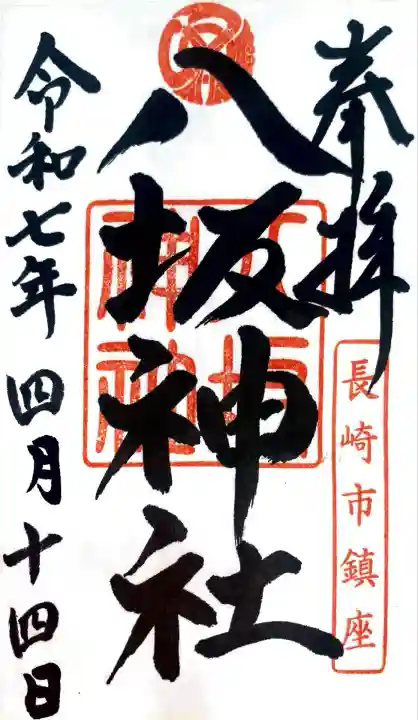 奉拝
長崎市鎮座
八坂神社
八坂神社
令和七年 四月十四日